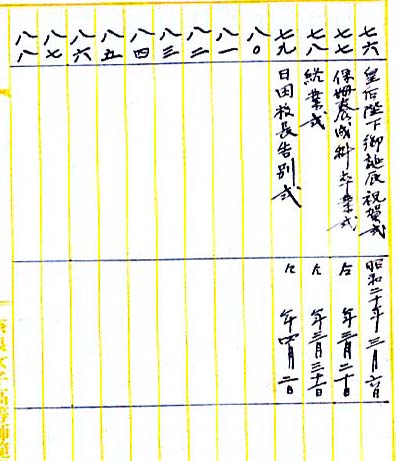 七六 皇后陛下御誕辰祝賀式 昭和二十年 三月六日
七七 保姆養成科卒業式 仝 年 三月二十日
七八 終業式 仝 年 三月三十日
七九 日田校長告別式 仝 年 四月二日
八〇
八一
八二
八三
八四
八五
八六
八七
八八
奈良女子高等師範